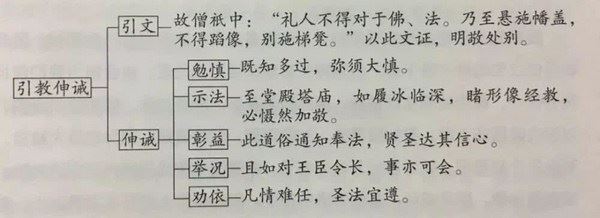 引教伸诫
引文
故僧祇中：“礼人不得对于佛、法。乃至悬施幡盖，
不得蹈像，别施梯凳。”以此文证，明敬处别。
伸诫
勉慎
既知多过，弥须大慎。
示法
至堂殿塔庙，如履冰临深，睹形像经教，
必慑然加敬。
彰益
此道俗通知奉法，贤圣达其信心。
举况
且如对王臣令长，事亦可会。
劝依
凡情难任，圣法宜遵。